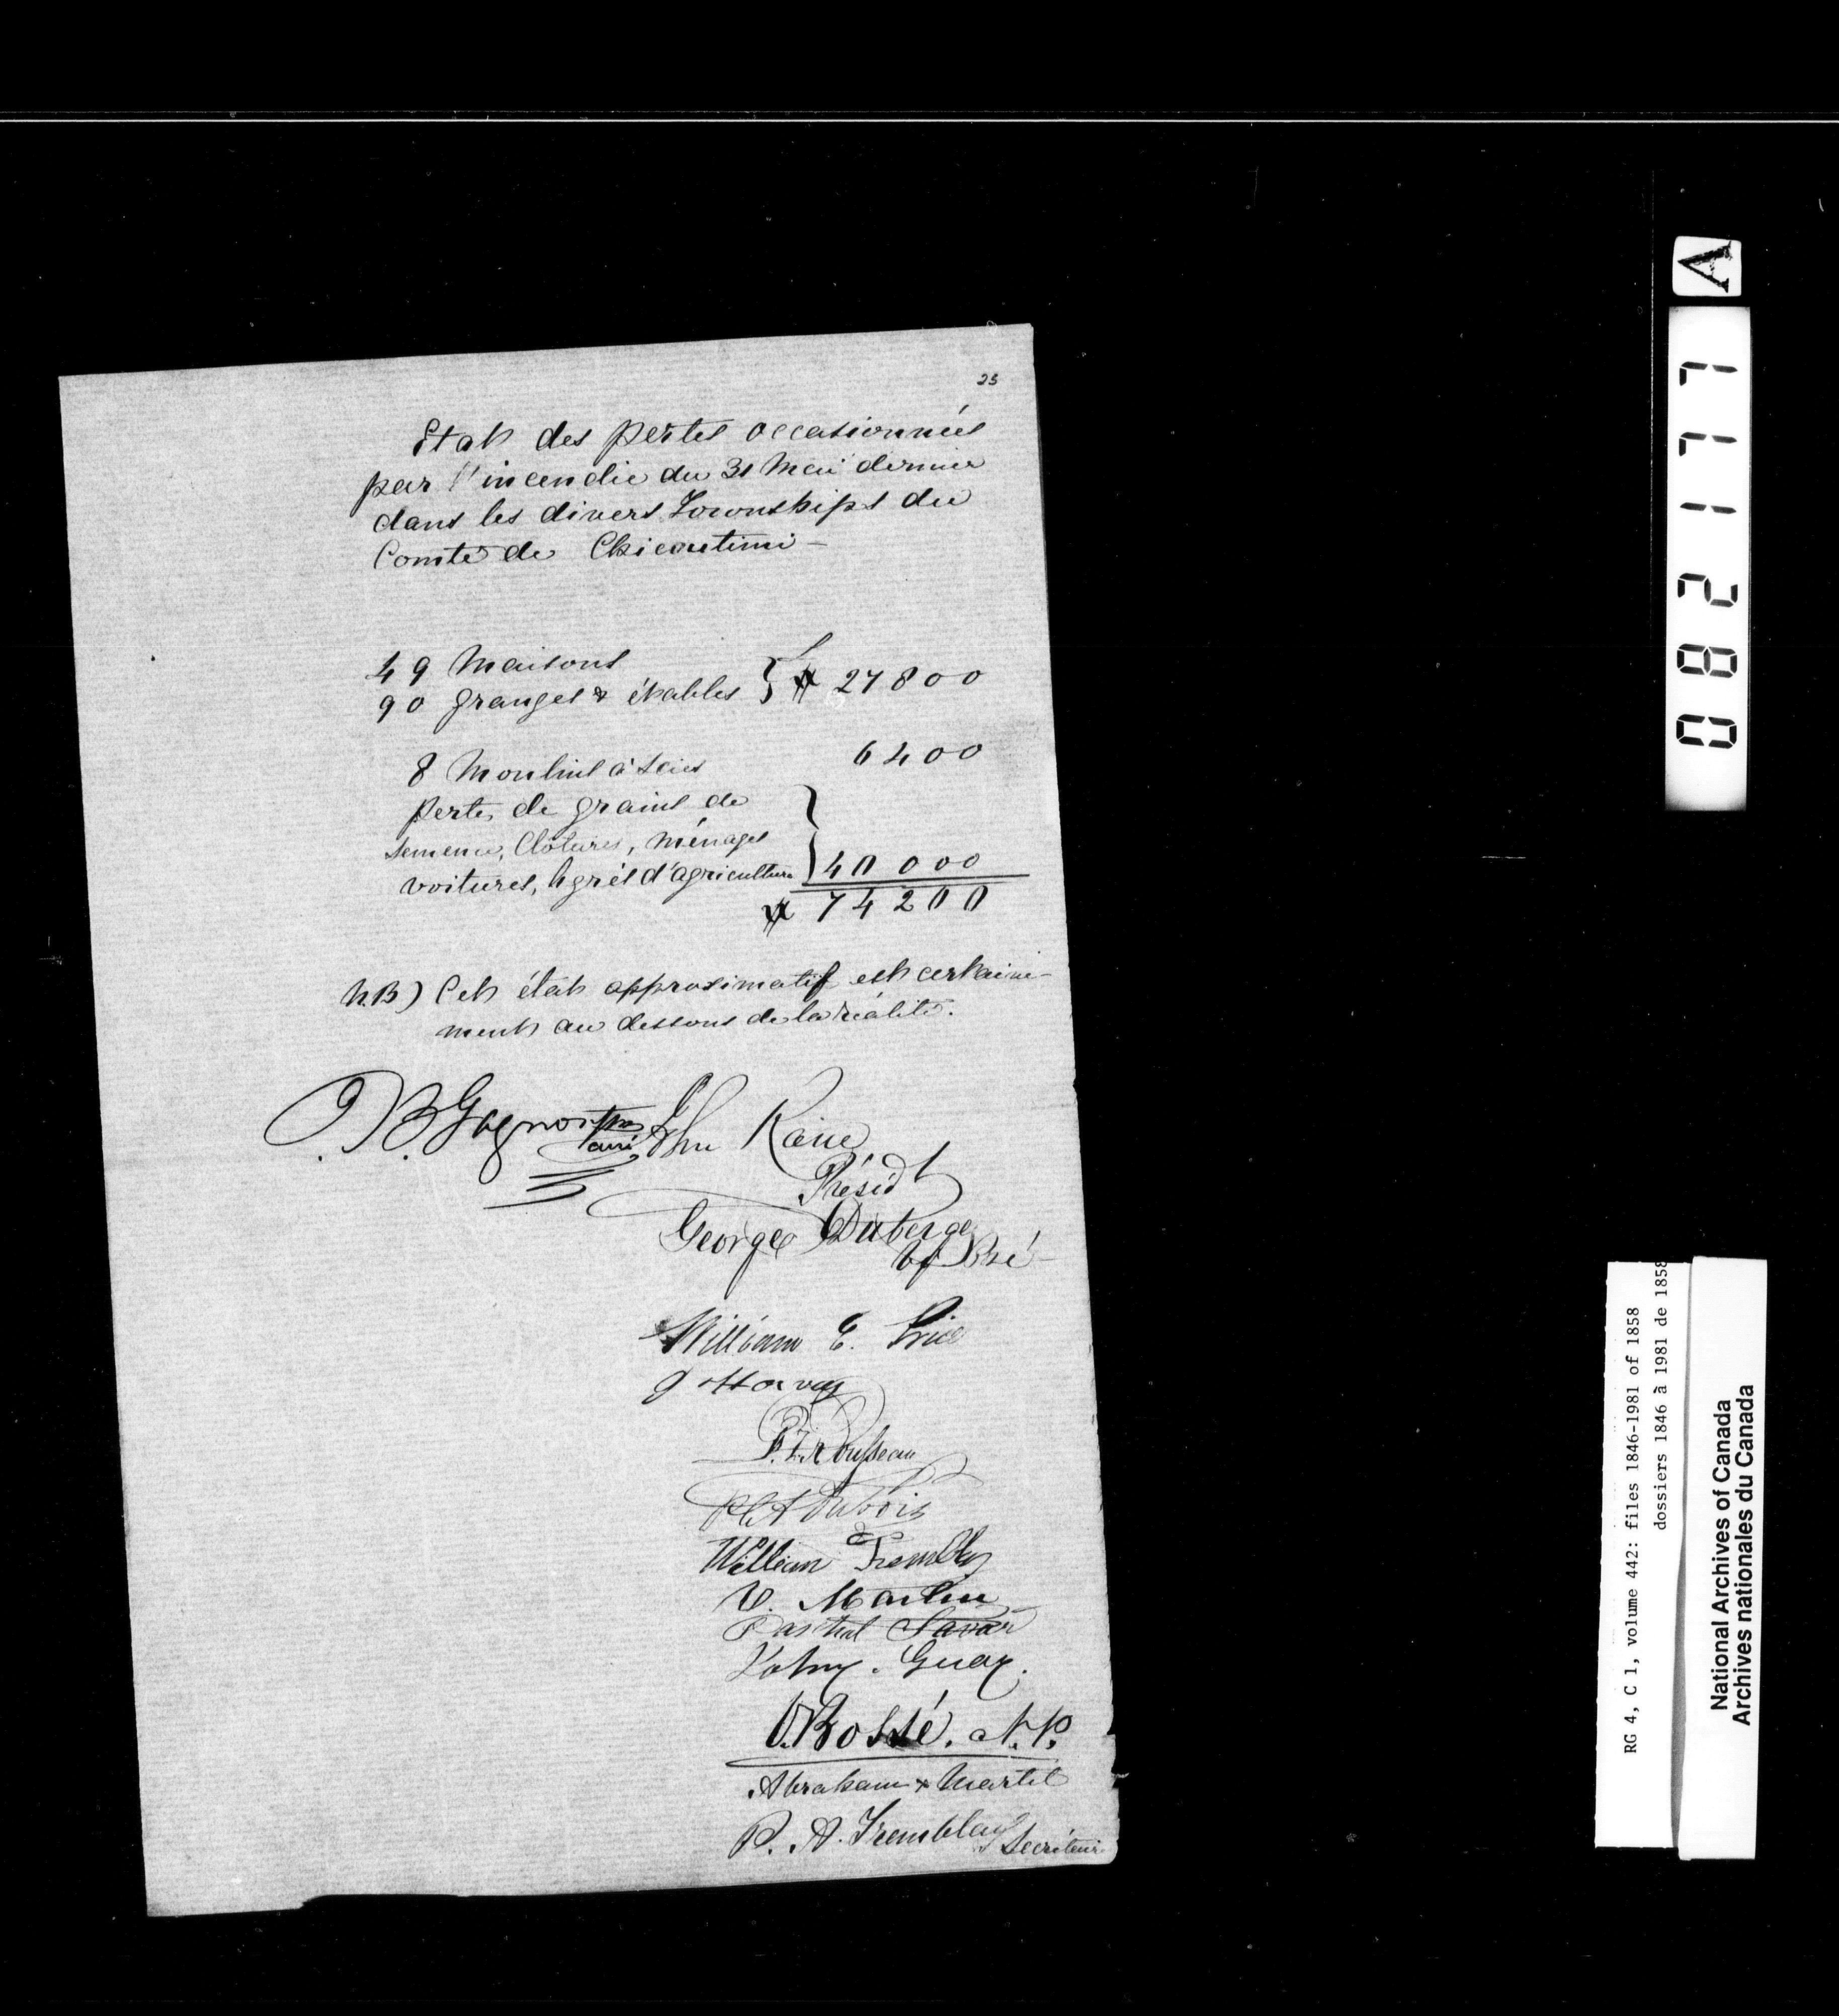 23
Etat des pertes occasionnées
par l'incendie du 31 Mai dernier
dans les divers Townships du
Comté de Chicoutimi —
49 Maisons
90 granges & étables } $ 27800
8 Moulins à scies 6400
perte de grains de
semence, Clôtures, ménages
voitures, Agrès d'agriculture } 40 000
$ 74200
N.B) Cet état approximatif est certaine-
ment au dessous de la réalité.
D. B. Gagnon ptre curé
John Kane
Présidt
George Duberge
William E. Price
J Harvey
P. Z. Rousseau
P C A Dubois
William Tremblay
V. Martin
Pascal Savar
Johny. Guay.
O. Bossé. N.P.
Abraham x Martel
P. A. Tremblay Secrétaire
A
082177
RG 4, C 1, volume 442: files 1846-1981 of 1858
dossiers 1846 à 1981 de 1858
National Archives of Canada
Archives nationales du Canada